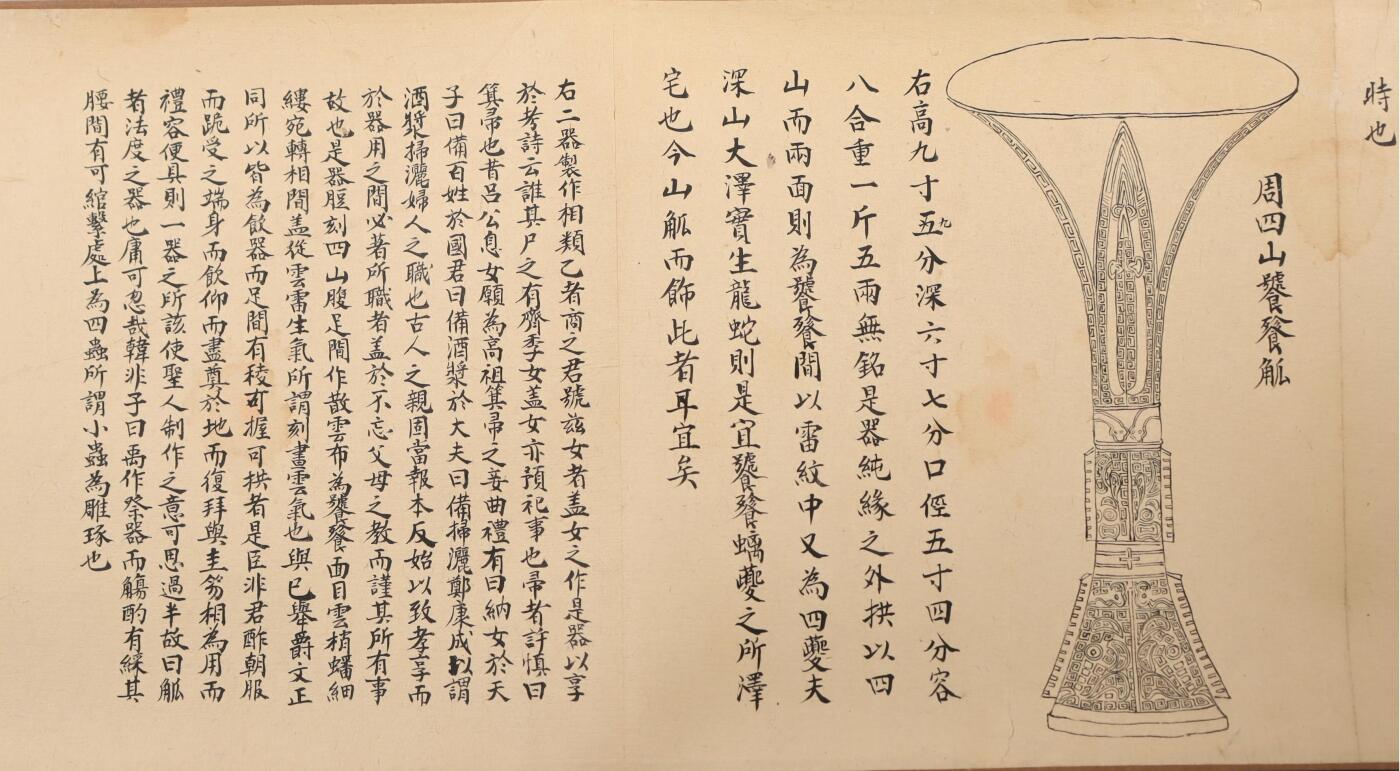 時也
周四山饕餮觚
右高九寸五九分深六寸七分口徑五寸四分容
八合重一斤五兩無銘是器純緣之外拱以四
山而兩面則為饕餮間以雷紋中又為四夔夫
深山大澤實生龍蛇則是宜饕餮螭夔之所澤
宅也今山觚而飾此者耳宜矣
右二器製作相類乙者商之君號茲女者盖女之作是器以享
於考詩云誰其尸之有齊季女盖女亦預祀事也帚者許慎曰
箕帚也昔呂公息女願為高祖箕帚之妾曲禮有曰納女於天
子曰備百姓於國君曰備酒漿於大夫曰備掃灑鄭康成以謂
酒漿掃灑婦人之職也古人之親固當報本反始以致孝享而
於器用之間必著所職者盖於不忘父母之教而謹其所有事
故也是器脰刻四山腹足間作散雲布為饕餮面目雲梢蟠細
縷宛轉相間盖從雲雷生氣所謂刻畫雲氣也與已舉爵文正
同所以皆為飲器而足間有稜可握可拱者是臣非君酢朝服
而跪受之端身而飲仰而盡奠於地而復拜與圭笏相為用而
禮容便具則一器之所該使聖人制作之意可思過半故曰觚
者法度之器也庸可忽哉韓非子曰禹作祭器而觴酌有綵其
腰間有可綰繫處上為四蟲所謂小蟲為雕琢也